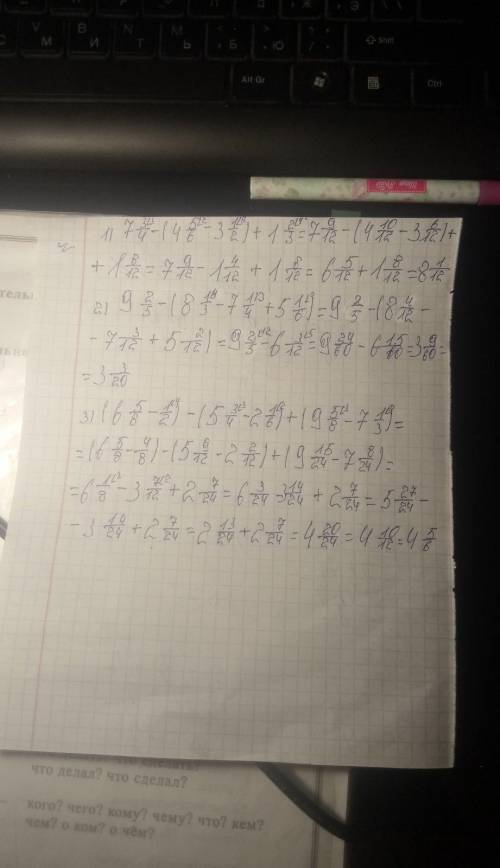 Alt Gr
Ctrl
Shift
1) 7 3/4 - (4 5/6 - 3 1/2) + 1 2/3 = 7 9/12 - (4 10/12 - 3 6/12) +
+ 1 8/12 = 7 9/12 - 1 4/12 + 1 8/12 = 6 5/12 + 1 8/12 = 8 1/12
2) 9 2/5 - (8 1/3 - 7 1/4 + 5 1/6) = 9 2/5 - (8 4/12 -
- 7 3/12 + 5 2/12) = 9 2/5 - 6 3/12 = 9 24/60 - 6 15/60 = 3 9/60 =
= 3 3/20
3) (6 5/8 - 1/2) - (5 3/4 - 2 1/6) + (9 5/8 - 7 1/3) =
= (6 5/8 - 4/8) - (5 9/12 - 2 2/12) + (9 15/24 - 7 8/24) =
= 6 1/8 - 3 7/12 + 2 7/24 = 6 3/24 - 3 14/24 + 2 7/24 = 5 27/24 -
- 3 14/24 + 2 7/24 = 2 13/24 + 2 7/24 = 4 20/24 = 4 10/12 = 4 5/6
что делал? что сделал?
кого? чего? кому? чему? что? кем?
чем? о ком? о чём?